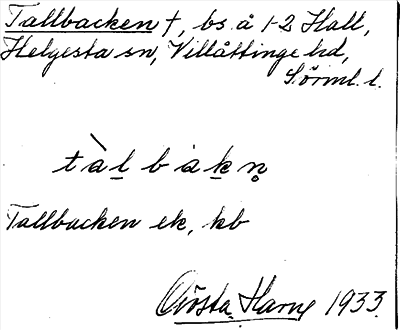 Tallbacken †, bs. å 1-2 Hall,
Helgesta sn, Villåttinge hd,
Sörml. l.
tàl bakn̥
Tallbacken ek, kb
Gösta Harne 1933.